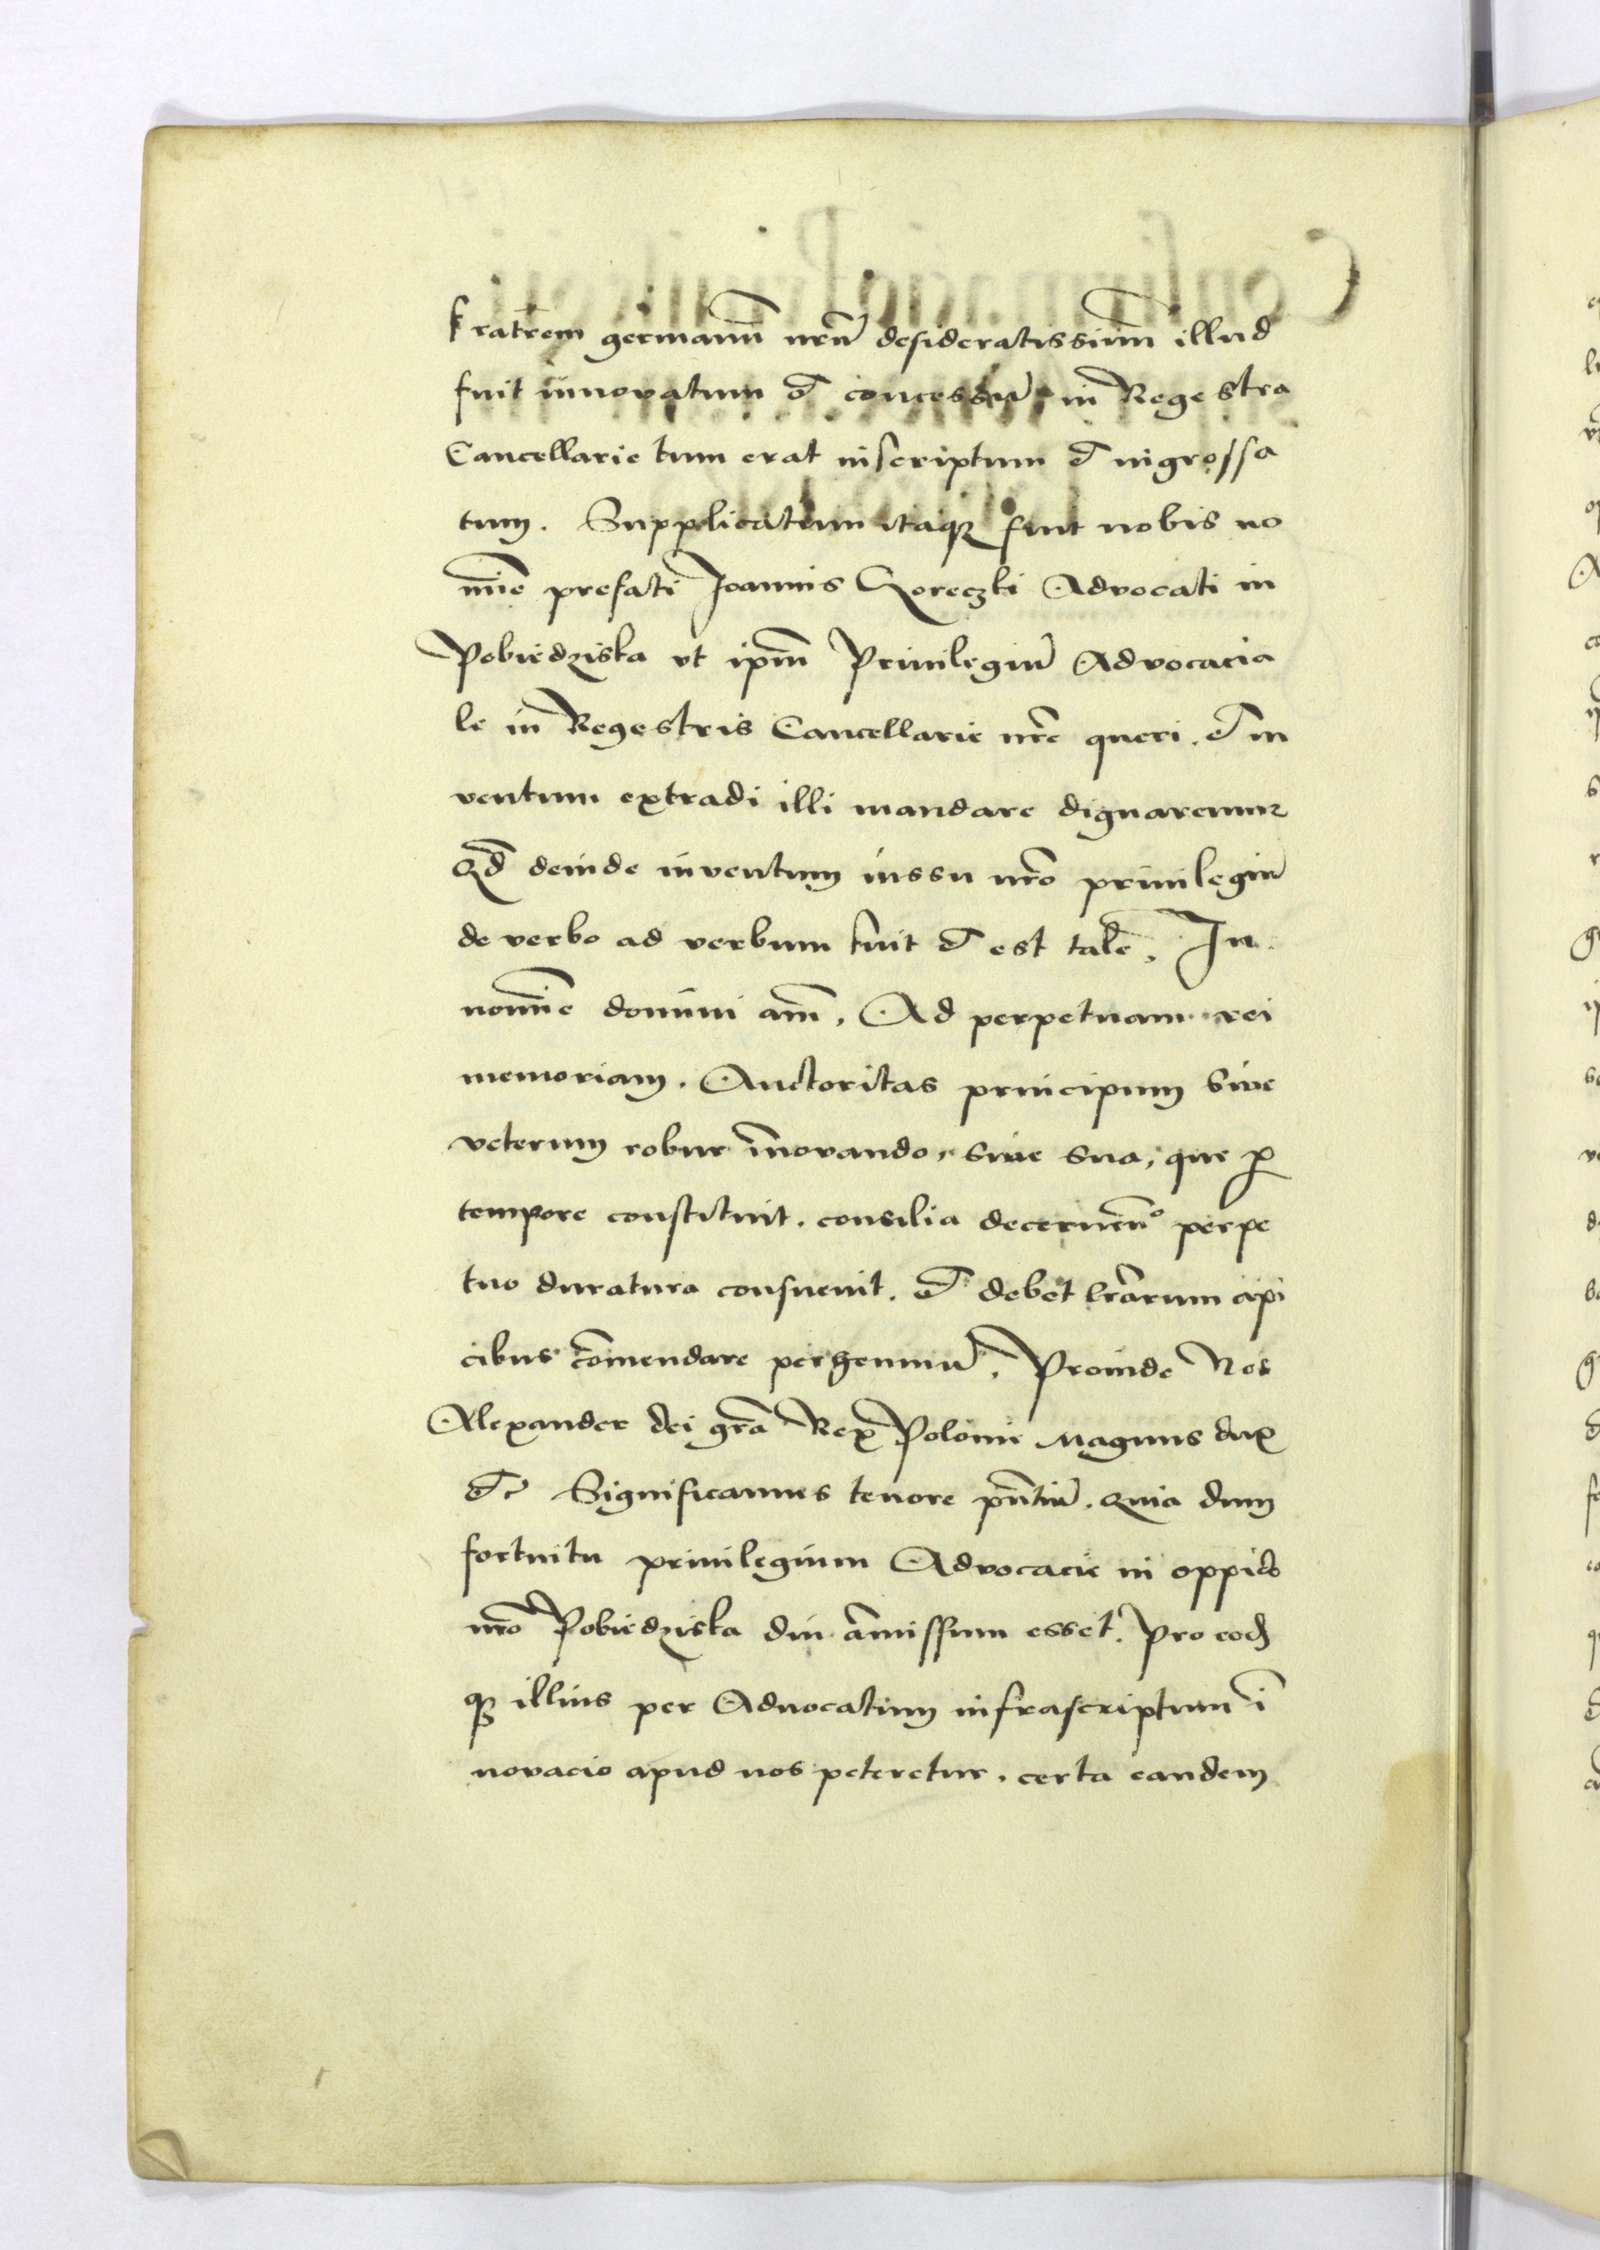 fratrem germanū nrū desideratissimū illud
fuit innovatum et concessū, in Regestra
Cancellarie tum erat inscriptum et ingrossa
tum. Supplicatum itaqꝫ fuit nobis no
mīe prefati Joannis Goreczki Advocati in
Pobiedziska vt ipm̄ Privilegiū Advocacia
le in Regestris Cancellarie nrē queri. et in
ventum extradi illi mandare dignaremur
Qd̄ deinde inventum iussu nrō privilegiū
de verbo ad verbum fuit et est tale. In
nomīe domini am̄. Ad perpetuam rei
memoriam. Auctoritas principum Sive
veterum robur īnovando, sive sua, que ꝓ
tempore constituit. consilia decernendo perpe
tuo duratura consuevit. et debet lr̄arum api
cibus cōmendare perhenniū. Proinde Nos
Alexander dei grā Rex Polonie Magnus dux
etc Significamus tenore pn̄tiū. Quia dum
fortuitu privilegium Advocacie in oppido
nrō Pobiedziska diu āmissum esset. Pro eoqꝫ
qꝫ illius per Aduocatum infrascriptum ī
novacio apud nos peteretur. certa eandem